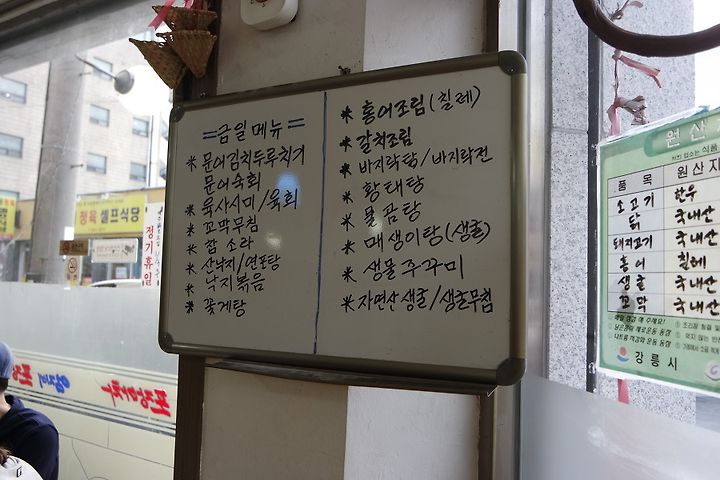 =금일메뉴=
* 문어김치두루치기
문어숙회
* 육사시미/육회
* 꼬막무침
* 참소라
* 산낙지/연포탕
낙지볶음
* 꽃게탕
* 홍어조림(칠레)
* 갈치조림
* 바지락탕/바지락전
* 황태탕
* 물곰탕
* 매생이탕(생굴)
* 생물쭈꾸미
* 자연산생굴/생굴무침
원산
품목 원산지
소고기 한우
닭 국내산
돼지고기 국내산
홍어 칠레
생굴 국내산
꼬막 국내산
강릉시
정육 셀프식당
정기휴일